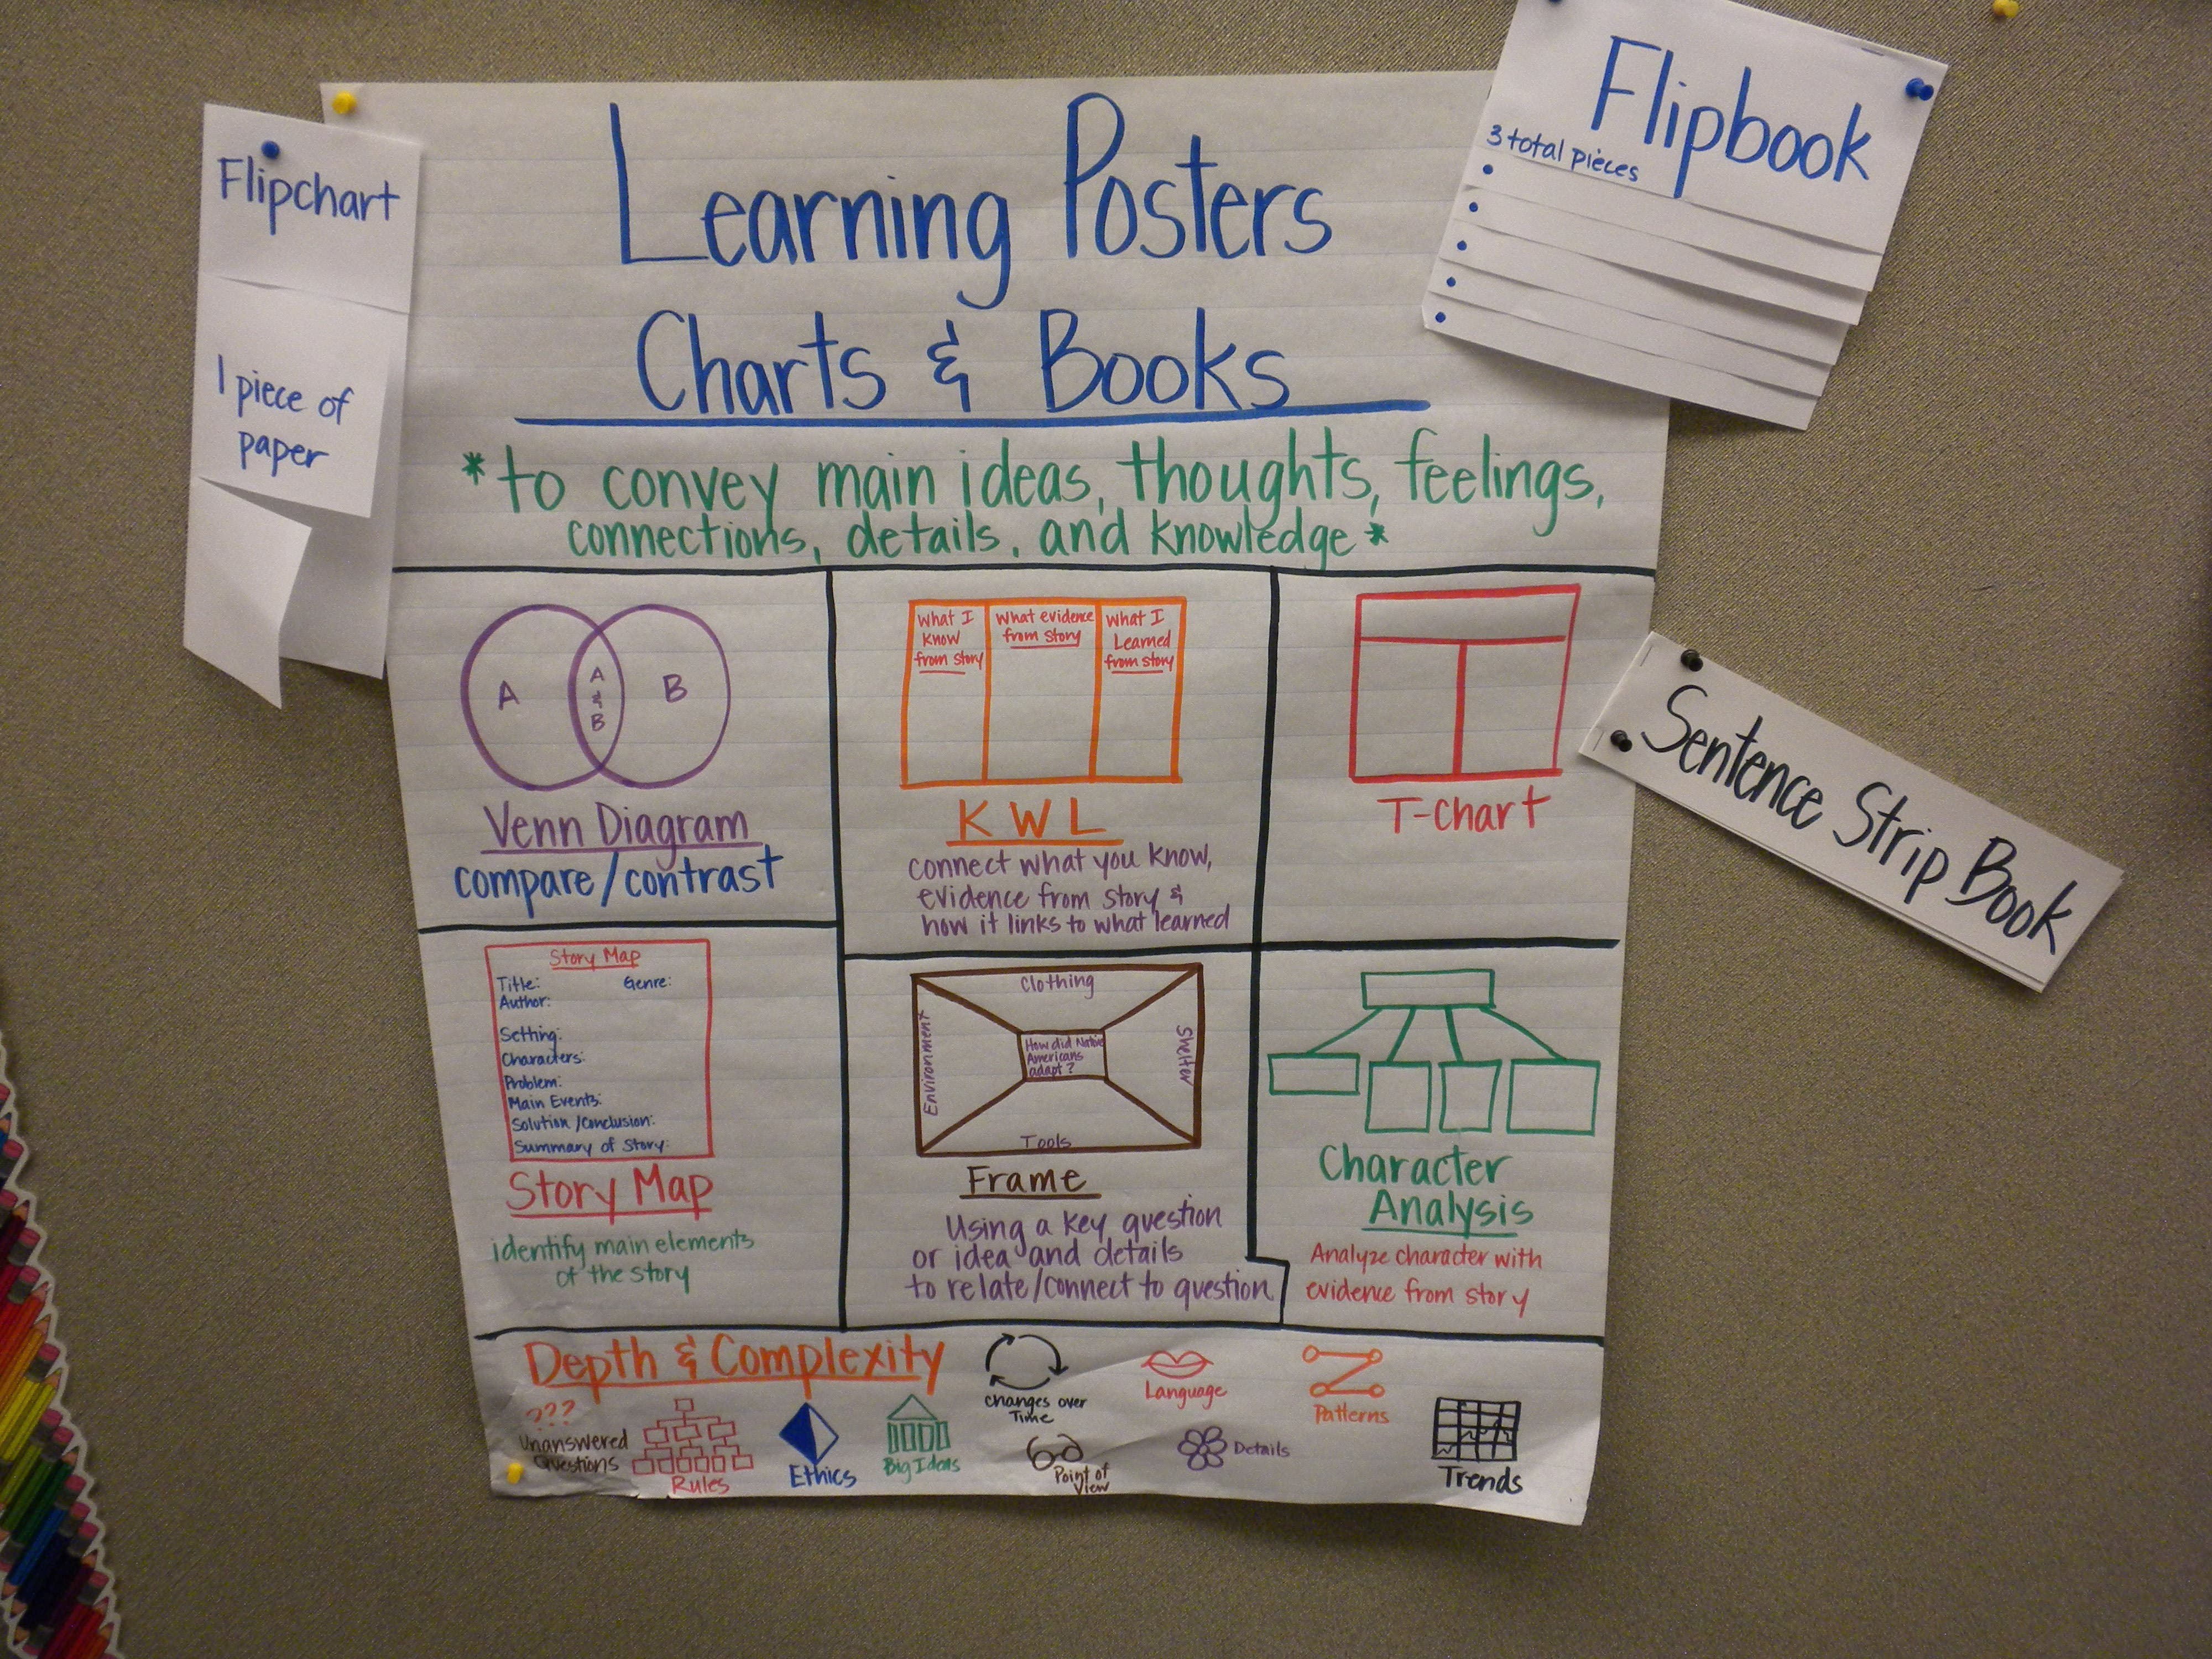 Flipchart
1 piece of
paper
Learning Posters
Charts & Books
Flipbook
3 total pieces
*to convey main ideas, thoughts, feelings,
connections, details, and knowledge*
A
A
&
B
B
Venn Diagram
compare/contrast
What I
know
from story
What evidence
from story
What I
Learned
from story
K W L
connect what you know,
evidence from story &
how it links to what learned
T-chart
Sentence Strip Book
Story Map
Title: Genre:
Author:
Setting:
Characters:
Problem:
Main Events:
Solution/Conclusion:
Summary of Story:
Story Map
identify main elements
of the story
Clothing
Environment
How did Native
Americans
adapt?
Shelter
Tools
Frame
Using a key question
or idea and details
to relate/connect to question
Character
Analysis
Analyze character with
evidence from story
Depth & Complexity
???
Unanswered
Questions
Rules
Ethics
Big Ideas
changes over
Time
Point of
View
Language
Details
Patterns
Trends